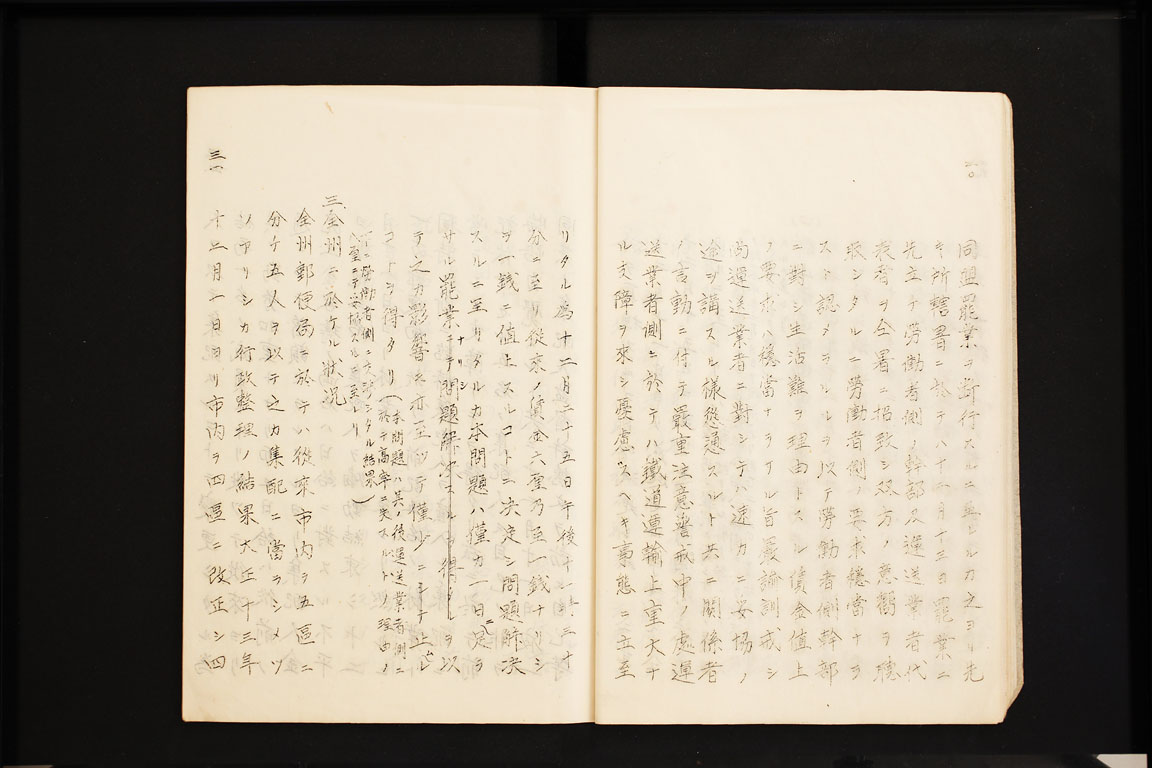 三〇
同盟罷業ヲ断行スルニ至レルカ之ヨリ先
キ所轄署ニ於テハ十二月十三日罷業ニ
先立チ労働者側ノ幹部及運送業者代
表者ヲ仝署ニ招致シ双方ノ意嚮ヲ聴
取シタルニ労働者側ノ要求穏當ナラ
スト認メラルルヲ以テ労働者側幹部
ニ對シ生活難ヲ理由トスル賃金値上
ノ要求ハ穏當ナラサル旨嚴諭訓戒シ
尚運送業者ニ對シテハ速カニ妥協ノ
途ヲ講スル様慫慂スルト共ニ関係者
ノ言動ニ付テ嚴重注意警戒中ノ處運
送業者側ニ於テハ鐵道運輸上重大ナ
ル支障ヲ來シ憂慮スヘキ事態ニ立至
リタル為十二月二十五日午後十時三十
分ニ至リ從來ノ賃金六厘乃至一銭ナリシ
ヲ一銭ニ値上スルコトニ決定シ問題解決
スルニ至リタルカ本問題ハ僅カ一日ニ足ラ
サル罷業ニテ問題解決ナリシヲ以
テ之カ影響モ亦至ツテ僅少ニシテ止ムル
コトヲ得タリ(本問題ハ其ノ後運送業者側ニ
於テ高率ニ失スルトノ理由ノ
下ニ労働者側ニ交渉シタル結果
八厘ニテ妥協スルニ至レリ)
三、全州ニ於ケル状況
全州郵便局ニ於テハ從來市内ヲ五區ニ
分ケ五人ヲ以テ之カ集配ニ當ラシメツ
ツアリシカ行政整理ノ結果大正十三年
十二月一日ヨリ市内ヲ四區ニ改正シ四
三一